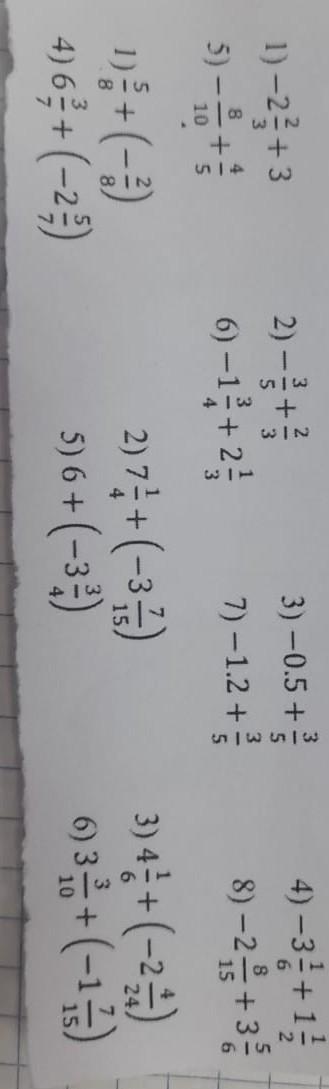 1) −2 2/3 + 3 2) −3/5 + 2/3 3) −0.5 + 3/5 4) −3 1/6 + 1 1/2
5) −8/10 + 4/5 6) −1 3/4 + 2 1/3 7) −1.2 + 3/5 8) −2 8/15 + 3 5/6
1) 5/8 + (−2/8) 2) 7 1/4 + (−3 7/15) 3) 4 1/6 + (−2 4/24)
4) 6 3/7 + (−2 5/7) 5) 6 + (−3 3/4) 6) 3 3/10 + (−1 7/15)